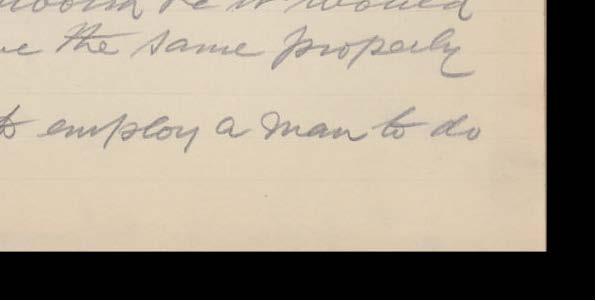 it would
the same properly
to employ a man to do